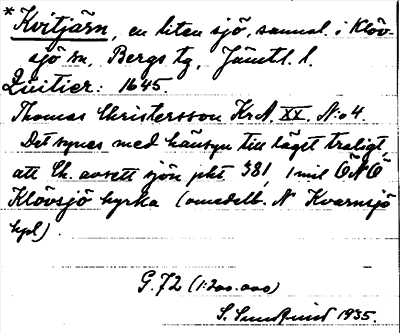 * Kvitjärn, en liten sjö, sannol. i Klöv-
sjö sn, Bergs tg, Jämtl. l.
Quitier: 1645.
Thomas Christersson KrA. XX. N:o 4.
Det synes med hänsyn till läget troligt,
att Ch. avsett sjön pkt 381, 1 mil ÖNÖ
Klövsjö kyrka (omedelb. N Kvarnsjö
hpl).
G. 72 (1:200.000)
S. Sundquist 1935.